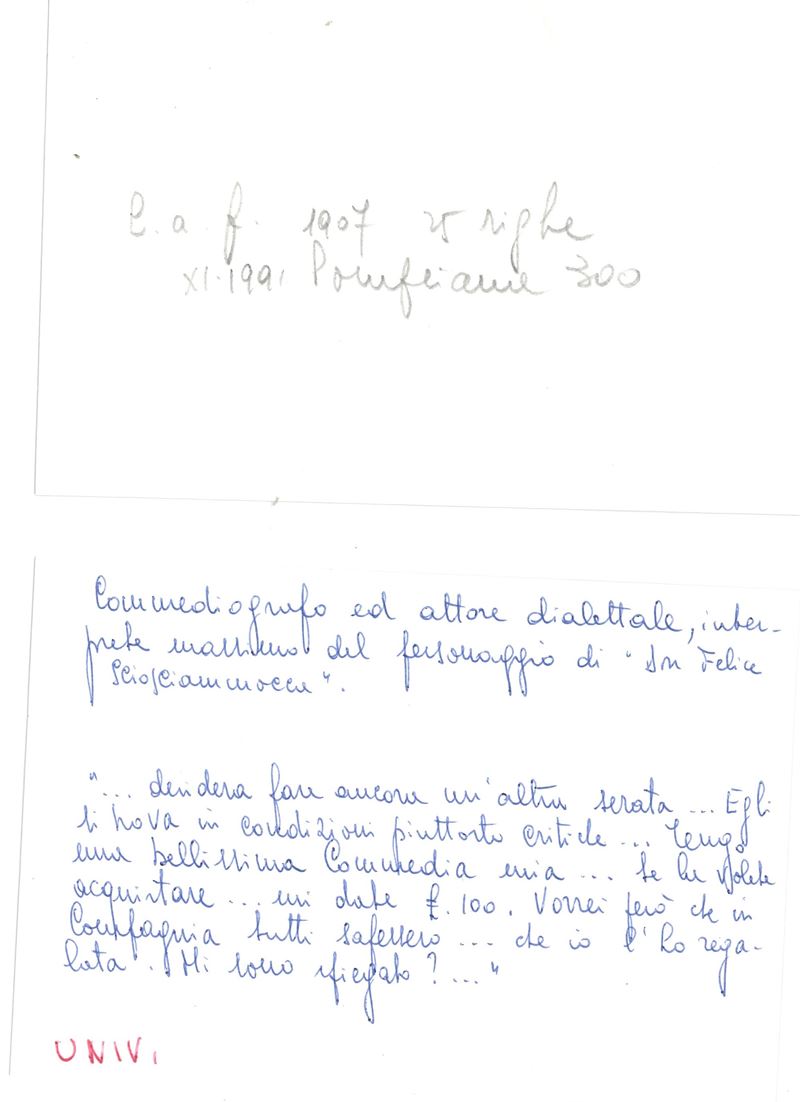 L. a. f. 1907 25 righe
XI-1991 Pompeiana 300
Commediografo ed attore dialettale, inter-
prete massimo del personaggio di "Don Felice
Sciosciammocca".
"... desidera fare ancora un'altra serata ... Egli
si trova in condizioni piuttosto critiche ... Tengo
una bellissima Commedia mia ... Se la volete
acquistare ... mi date £. 100. Vorrei però che in
Compagnia tutti sapessero ... che io l'ho rega-
lata. Mi sono spiegato? ..."
UNIV.